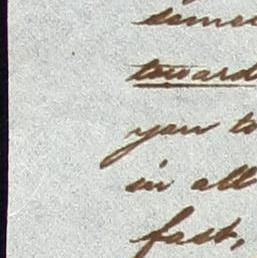 toward
you to
in all
fact,